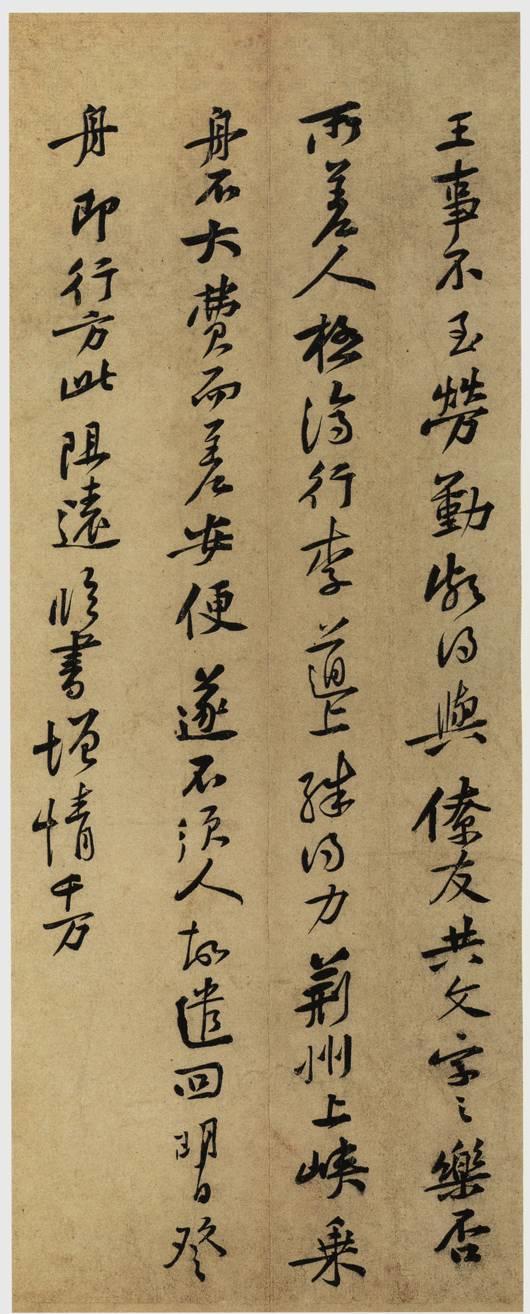 王事不至勞勤頗得與僚友共文字之樂否
所差人極濟行李道上殊得力荆州上峽乘
舟不大費而差安便遂不須人故遣回明日發
舟即行方此阻遠臨書增情千万